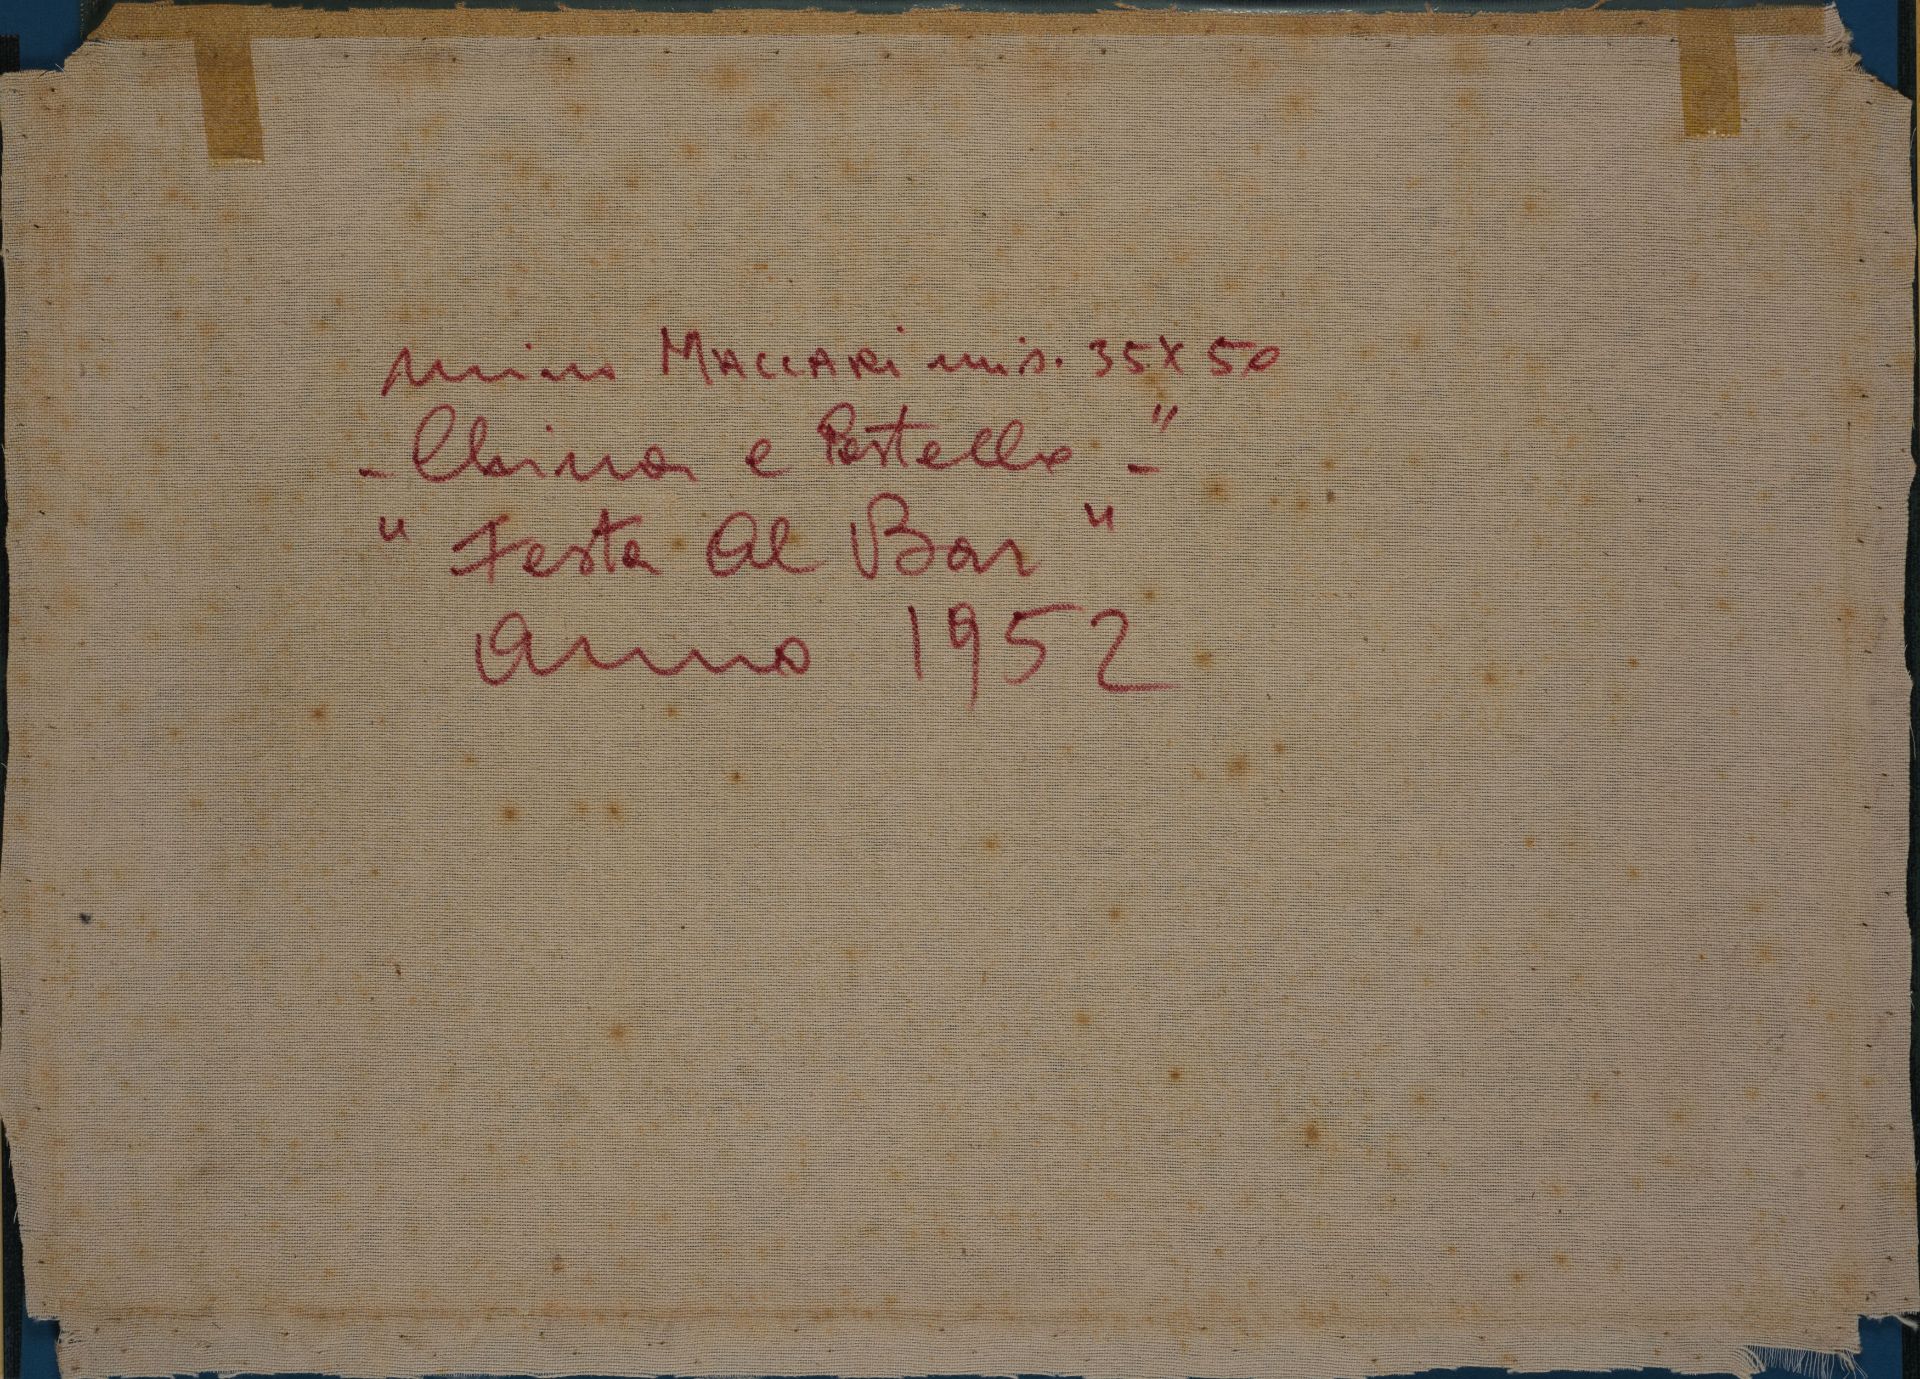 Mino MACCARi mis. 35X50
- China e Pastello - "
" Festa Al Bar "
Anno 1952